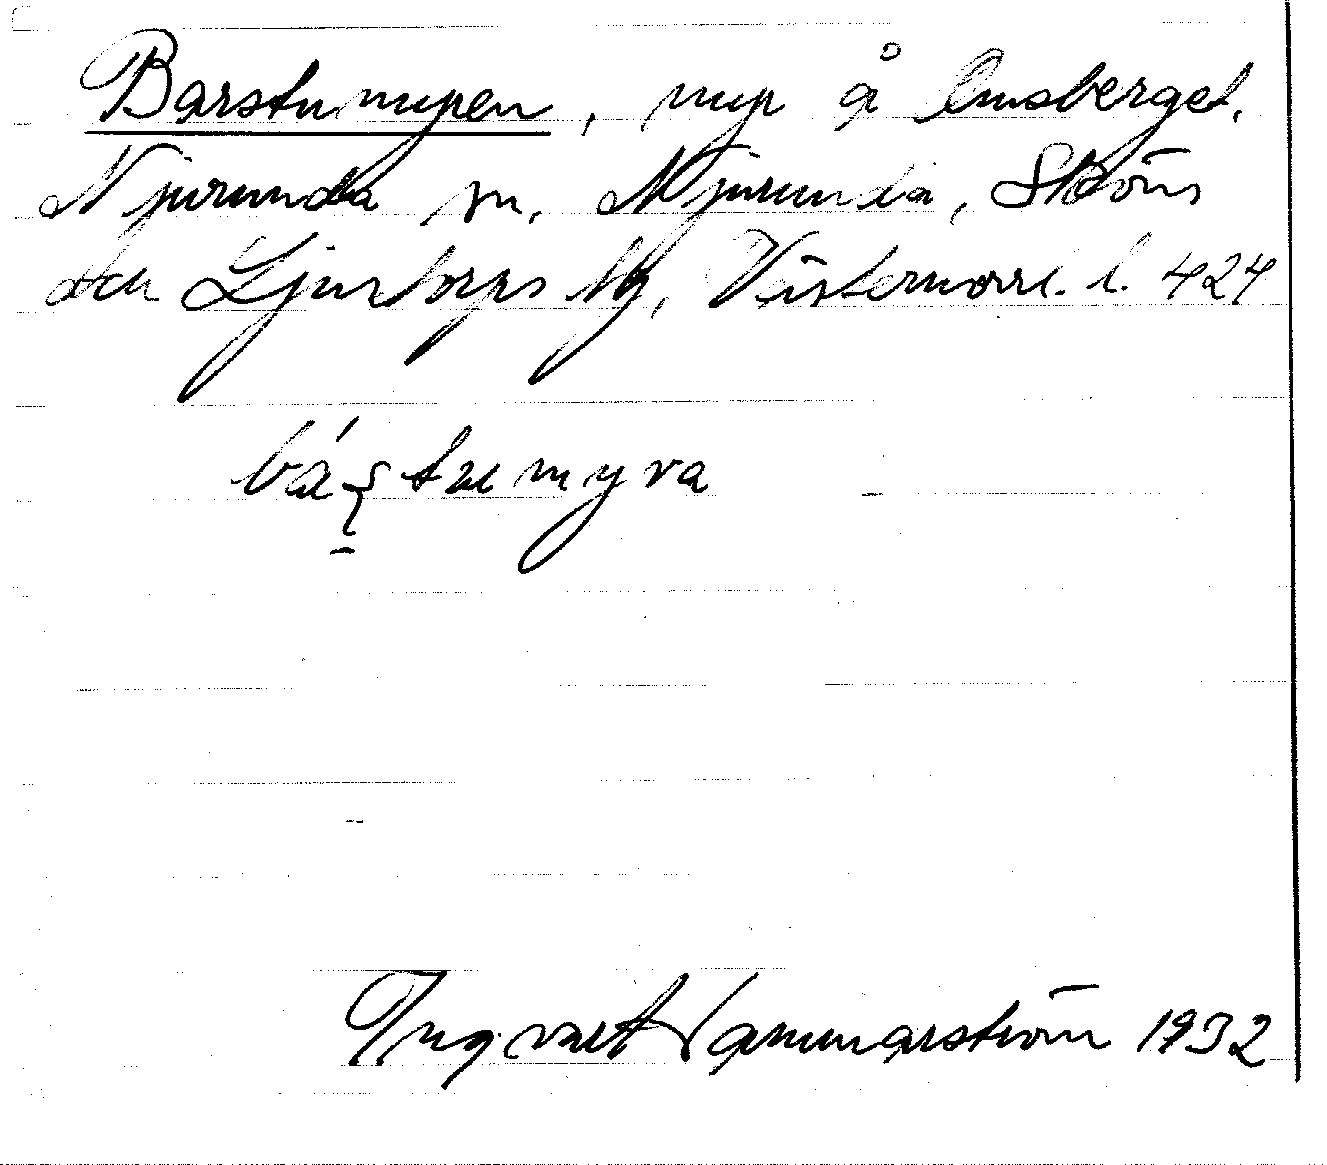 Barstumyren, myr å Ensberget.
Njurunda sn. Njurunda, Sköns
och Ljustorps tg, Västernorrl. l. 424
bá tu myra
Ingvart Hammarström 1932